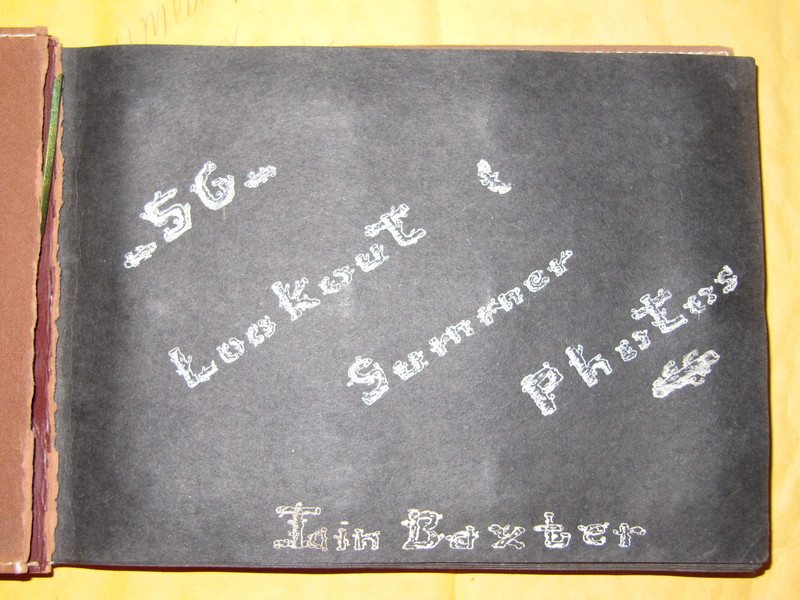 -56-
Lookout
Summer
Photos
Iain Baxter